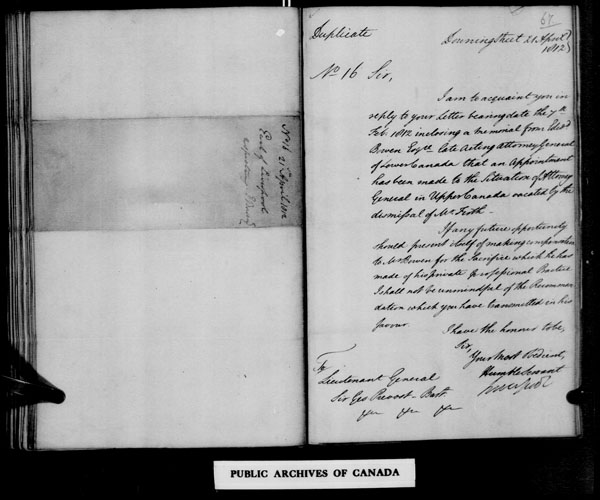 67
Duplicate
Downing Street 21 April
1812
No 16 Sir,
I am to acquaint you in
reply to your Letter bearing date the 7th
Feb. 1812 inclosing a Memorial from Edwd
Bowen Esqre late Acting Attorney General
of Lower Canada that an Appointment
has been made to the Situation of Attorney
General in Upper Canada vacated by the
dismissal of Mr Firth.
If any future opportunity
should present itself of making compensation
to Mr Bowen for the Sacrifice which he has
made of his private & professional Practice
I shall not be unmindful of the Recommen
dation which you have transmitted in his
favour.
I have the honour to be,
Sir,
Your Most Obedient,
Humble Servant
Liverpool
To
Lieutenant General
Sir Geo Prevost Bart.
No 16 21 April 1812
Earl of Liverpool
PUBLIC ARCHIVES OF CANADA